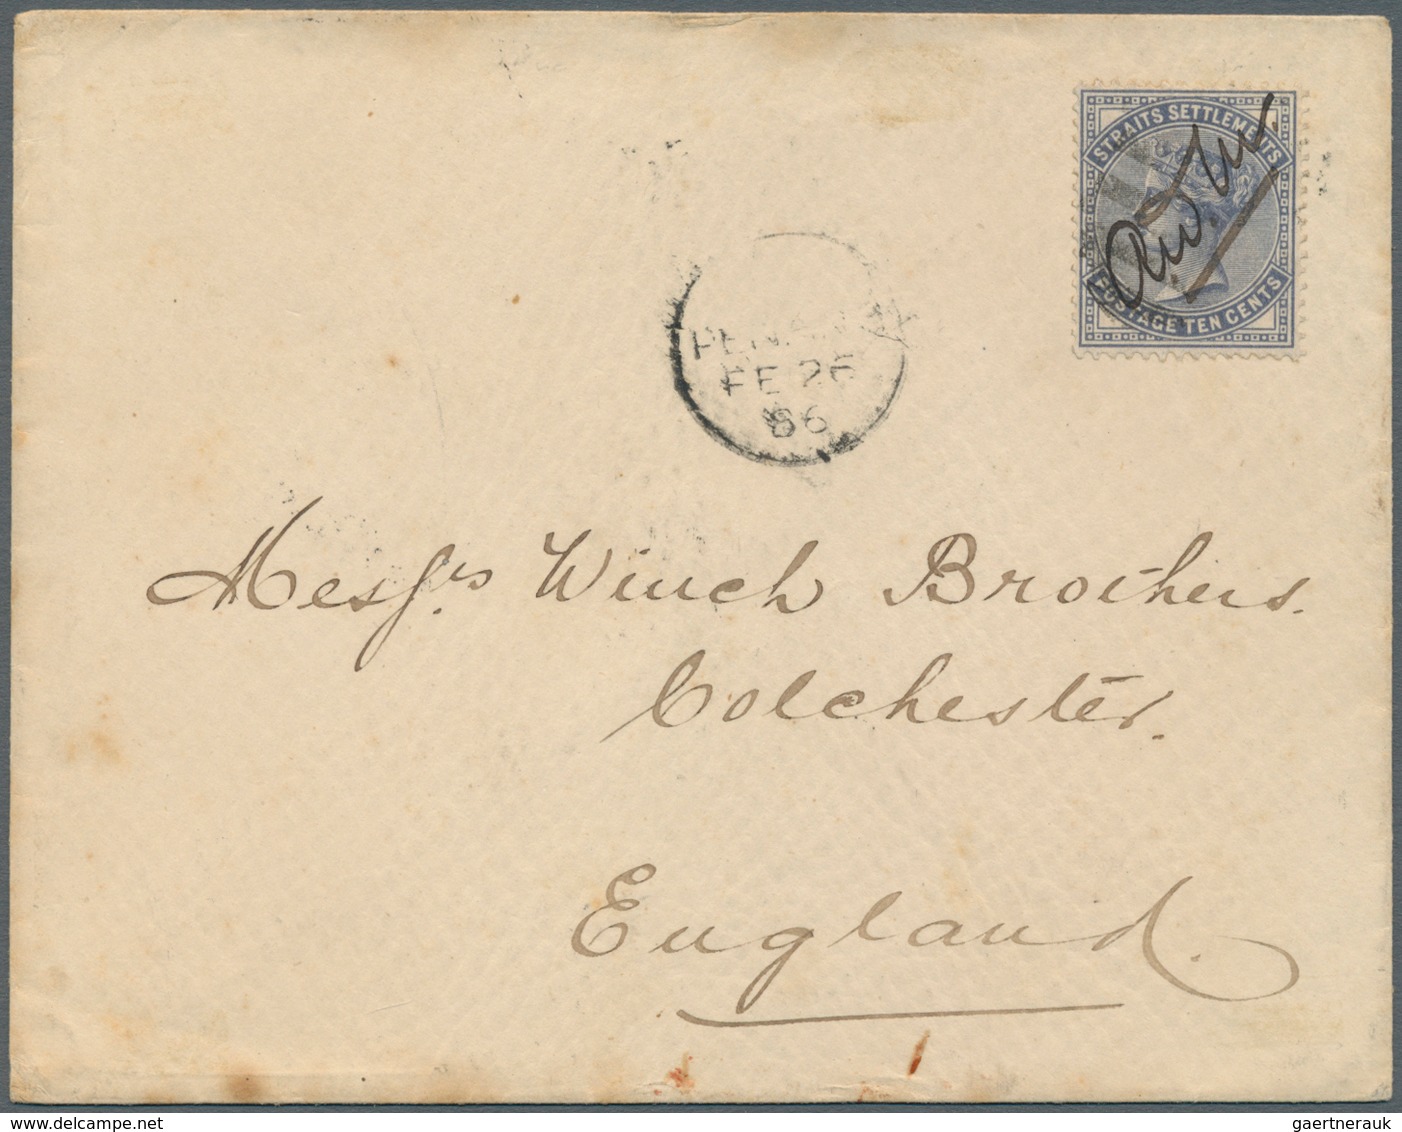 STRAITS SETTLEMENTS
POSTAGE TEN CENTS
PENANG
FE 26
86
Messrs Winch Brothers.
Colchester.
England.
gaertnerauk @ delcampe.net